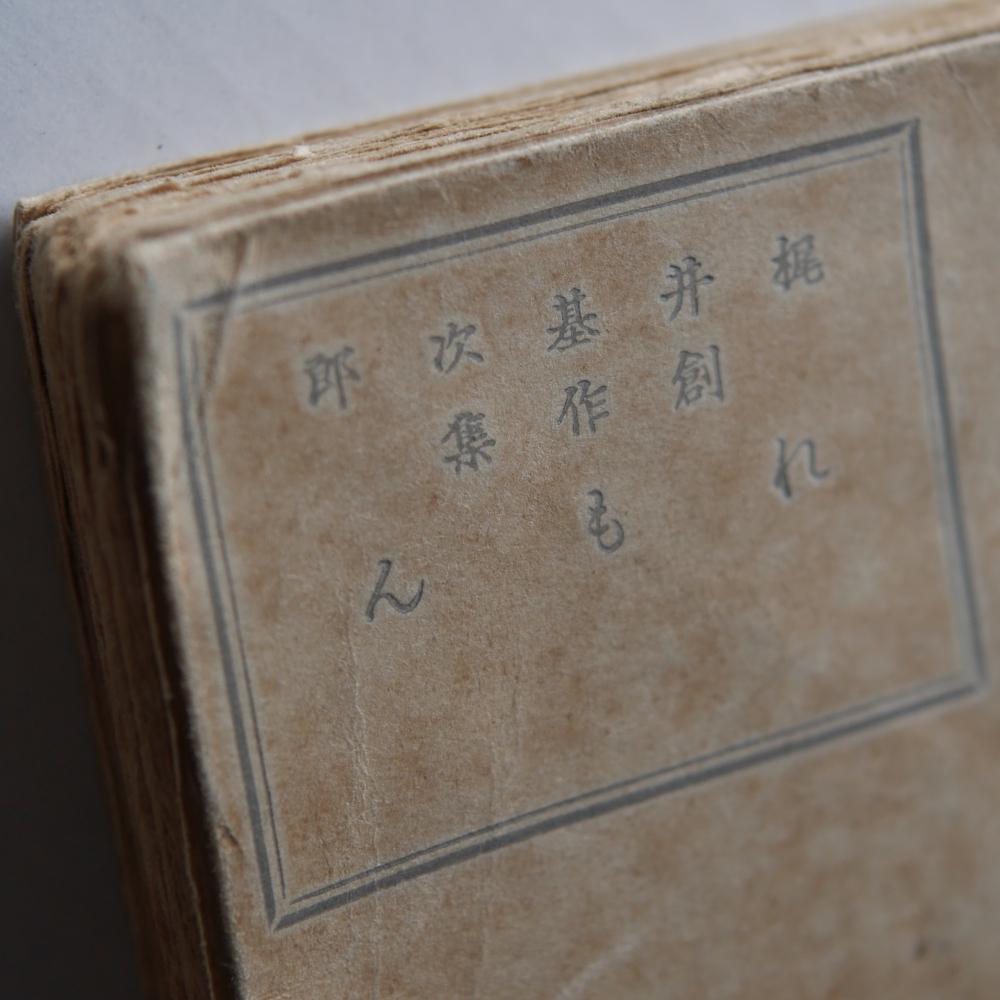 梶井基次郎
創作集
れもん